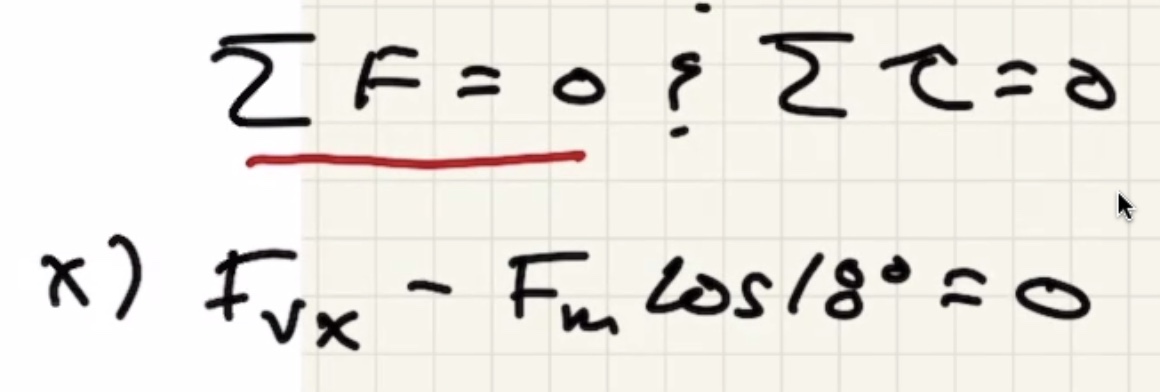 Σ F = 0 & Σ τ = 0
x) F_Vx - F_m cos 18° = 0